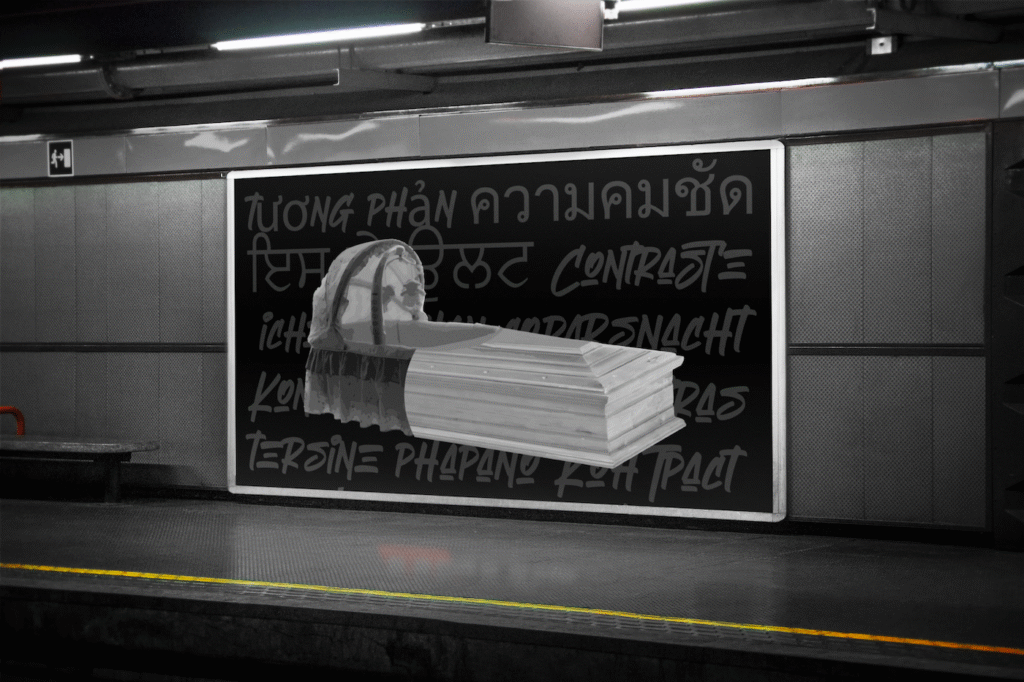 TƯƠNG PHẢN ความคมชัด
ਇਸ ਉਲਟ CONTRASTE
CODARSNACHT
TERSINE PHAPANO КОНТРАСТ